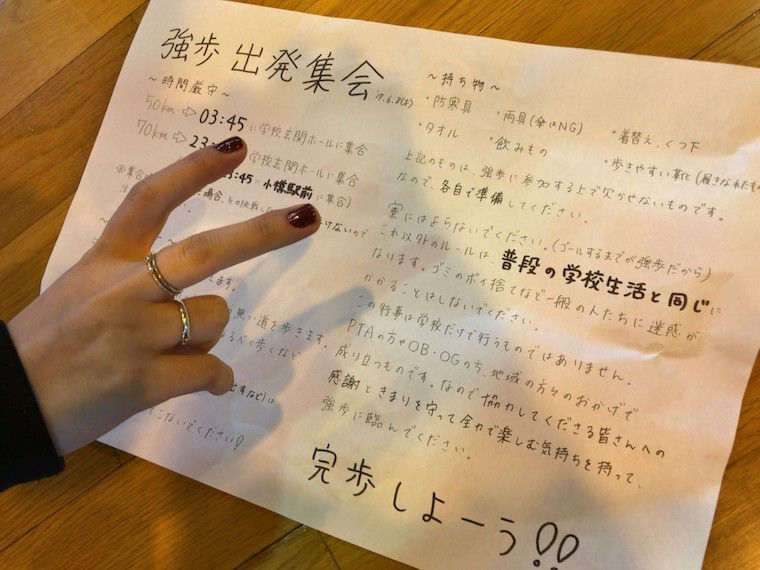 強歩 出発集会
'17.6.2(金)
〜時間厳守〜
50km ⇨ 03:45 に学校玄関ホールに集合
70km ⇨ 23:
学校玄関ホールに集合
3:45 に 小樽駅前 に集合)
※集合
場合、その挑戦し
けないので
ます。
無い道を歩きます。
なるべく歩くなど
出すなど)は
こないでください!
〜持ち物〜
・防寒具 ・雨具(傘はNG) ・着替え、くつ下
・タオル ・飲みもの ・歩きやすい靴(履きなれたもの
上記のものは、強歩に参加する上で欠かせないものです。
なので、各自で準備してください。
寮にはよらないでください。(ゴールするまでが強歩だから)
これ以外のルールは、普段の学校生活と同じに
なります。ゴミのポイ捨てなど一般の人たちに迷惑が
かかることはしないでください。
この行事は学校だけで行うものではありません。
PTAの方やOB・OGの方、地域の方々のおかげで
成り立つものです。なので協力してくださる皆さんへの
感謝ときまりを守って全力で楽しむ気持ちを持って、
強歩に臨んでください。
完歩しよーう!!